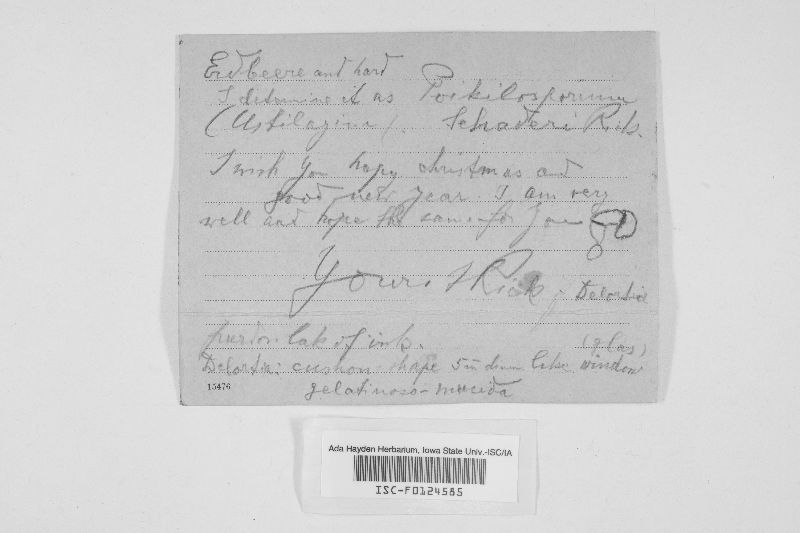 Erdbeere and hard
I determine it as Poikilosporium
(Ustilagina). Schaderi Rick.
I wish you hapy christmas and
good new year. I am very
well and hope the same for you
Yours J Rick, Delortia
pardon lak of ink. (glas)
Delortia: cushion shape 5 m diam like window
gelatinoso-mucida
15476
Ada Hayden Herbarium, Iowa State Univ.-ISC/IA
ISC-F0124585